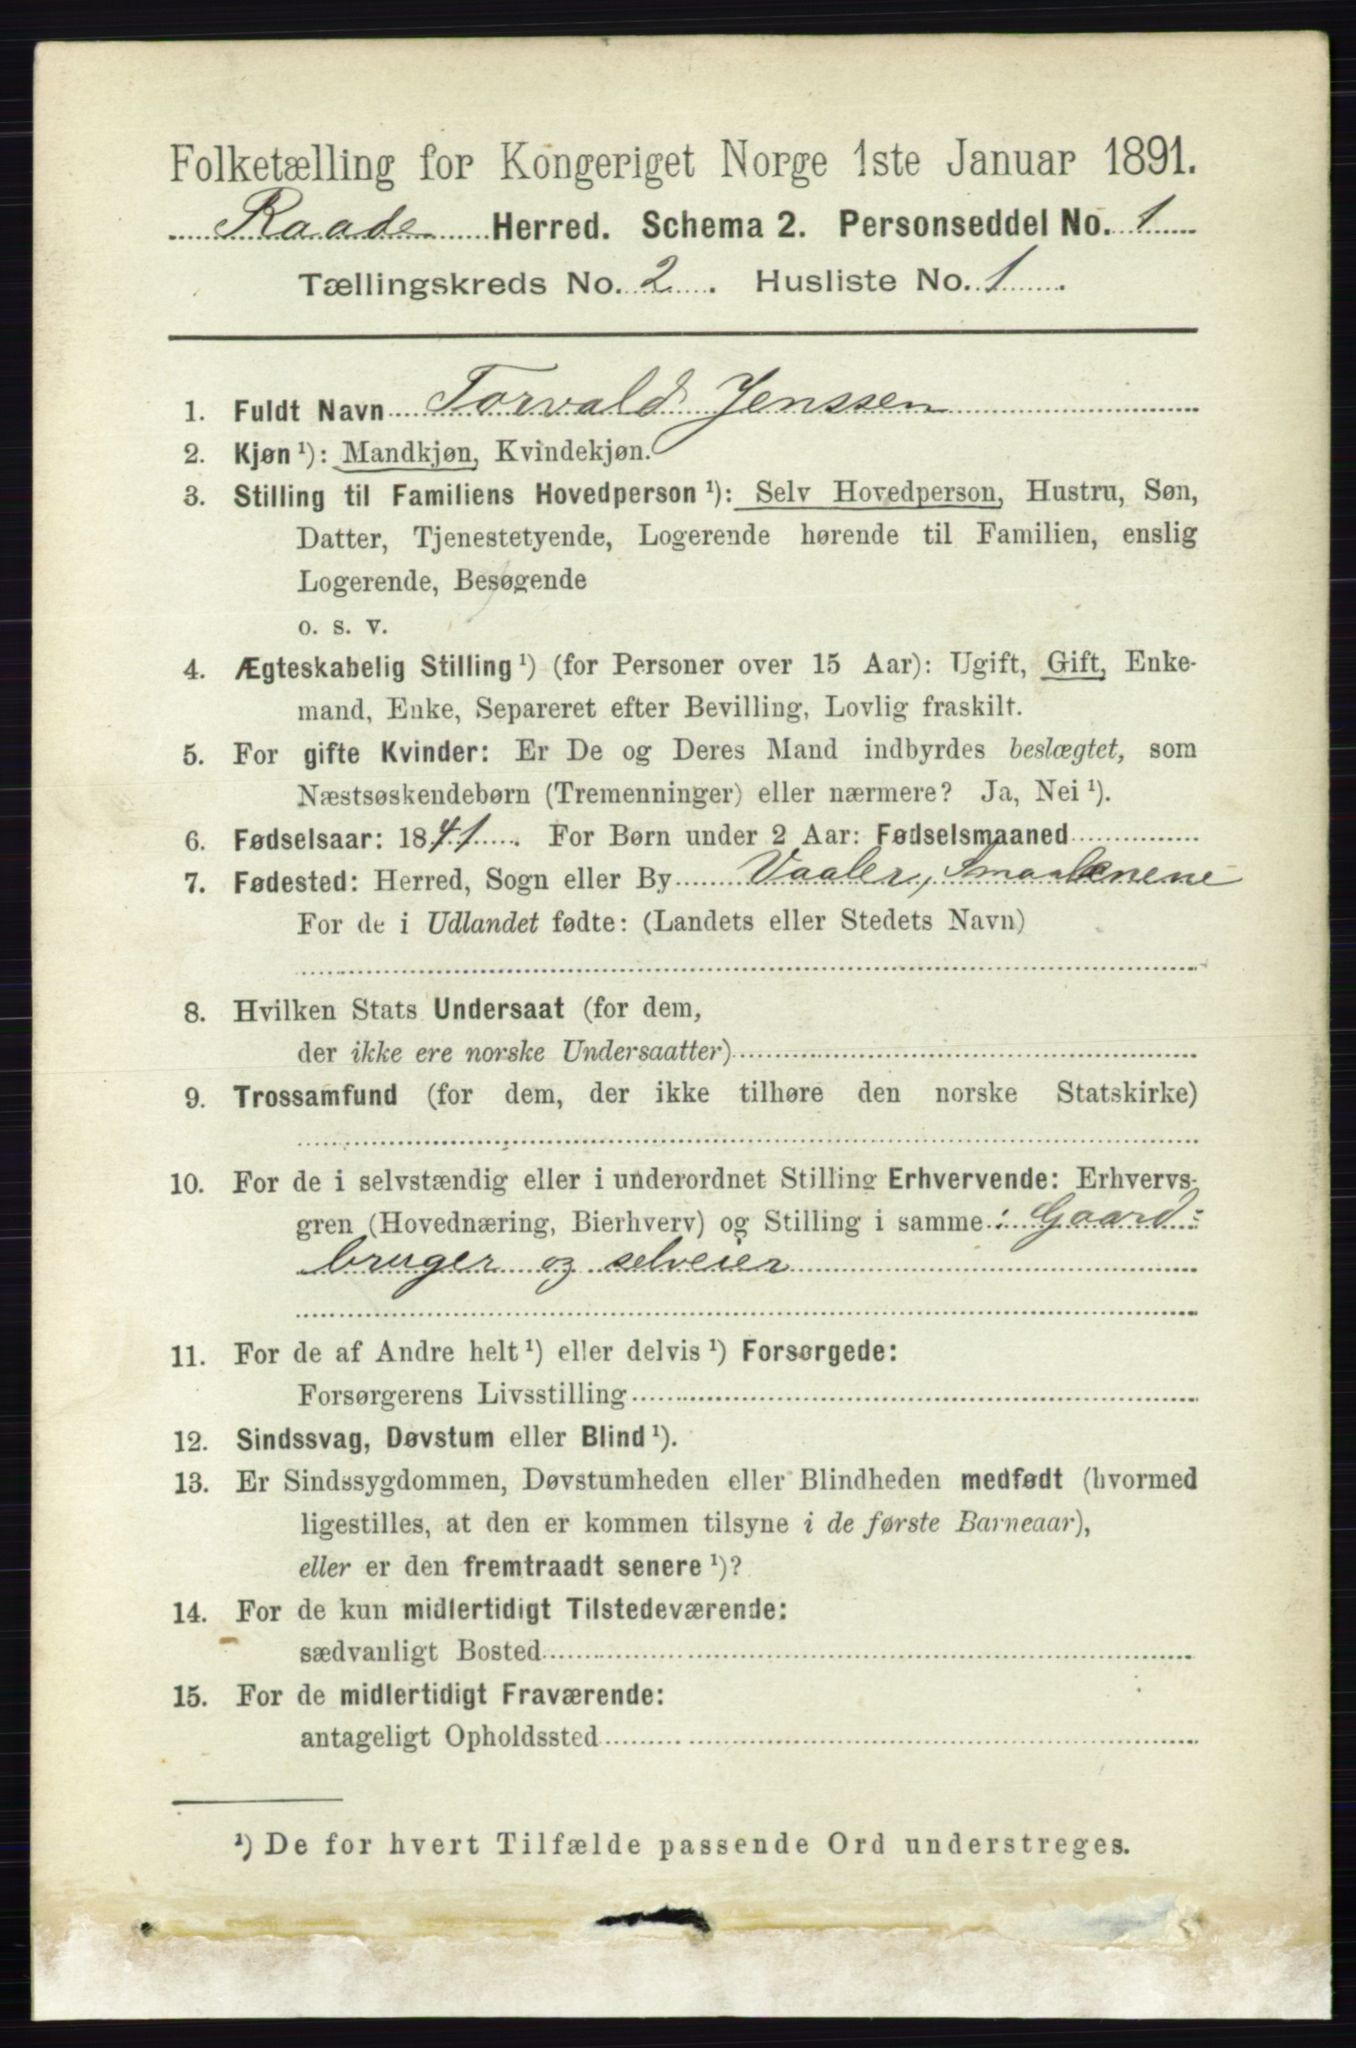 Folketælling for Kongeriget Norge 1ste Januar 1891.
Raade Herred. Schema 2. Personseddel No. 1
Tællingskreds No. 2. Husliste No. 1.
1. Fuldt Navn Torvald Jenssen
2. Kjøn ¹): Mandkjøn, Kvindekjøn.
3. Stilling til Familiens Hovedperson ¹): Selv Hovedperson, Hustru, Søn,
Datter, Tjenestetyende, Logerende hørende til Familien, enslig
Logerende, Besøgende
o. s. v.
4. Ægteskabelig Stilling ¹) (for Personer over 15 Aar): Ugift, Gift, Enke-
mand, Enke, Separeret efter Bevilling, Lovlig fraskilt.
5. For gifte Kvinder: Er De og Deres Mand indbyrdes beslægtet, som
Næstsøskendebørn (Tremenninger) eller nærmere? Ja, Nei ¹).
6. Fødselsaar: 1841. For Børn under 2 Aar: Fødselsmaaned
7. Fødested: Herred, Sogn eller By Vaaler, Smaalenene
For de i Udlandet fødte: (Landets eller Stedets Navn)
8. Hvilken Stats Undersaat (for dem,
der ikke ere norske Undersaatter)
9. Trossamfund (for dem, der ikke tilhøre den norske Statskirke)
10. For de i selvstændig eller i underordnet Stilling Erhvervende: Erhvervs-
gren (Hovednæring, Bierhverv) og Stilling i samme: Gaard-
bruger og selveier
11. For de af Andre helt ¹) eller delvis ¹) Forsørgede:
Forsørgerens Livsstilling
12. Sindssvag, Døvstum eller Blind ¹).
13. Er Sindssygdommen, Døvstumheden eller Blindheden medfødt (hvormed
ligestilles, at den er kommen tilsyne i de første Barneaar),
eller er den fremtraadt senere ¹)?
14. For de kun midlertidigt Tilstedeværende:
sædvanligt Bosted
15. For de midlertidigt Fraværende:
antageligt Opholdssted
¹) De for hvert Tilfælde passende Ord understreges.